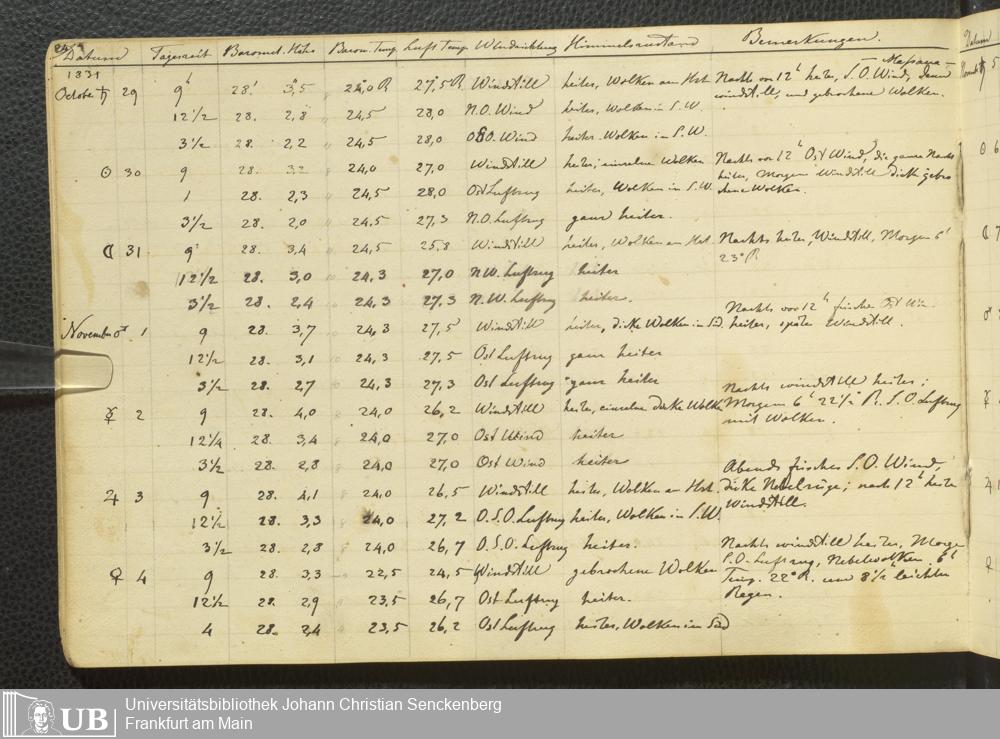 Datum Tageszeit Baromet. Höhe Barom. Temp. Luft Temp. Windrichtung Himmelszustand Bemerkungen.
1831 Massaua
October ♄ 29 9h 28.' 3,5 24,0 R 27,5 R. Windstill heiter, Wolken am Hrt. Nachts vor 12h heiter, S.O. Wind, dann
windstill, und gebrochene Wolken.
12 1/2 28. 2,8 24,5 28,0 N.O. Wind heiter, Wolken in S.W.
3 1/2 28. 2,2 24,5 28,0 OSO. Wind heiter Wolken in S.W.
☉ 30 9 28. 3,2 24,0 27,0 Windstill heiter, einzelne Wolken Nachts vor 12h Ost Wind, die ganze Nacht
heiter, Morgens Windstill dicke gebro
chene Wolken.
1 28. 2,3 24,5 28,0 Ost Luftzug heiter, Wolken in S.W.
3 1/2 28. 2,0 24,5 27,3 N.O. Luftzug ganz heiter.
☾ 31 9 28. 3,4 24,5 25,8 Windstill heiter, Wolken am Hrt. Nachts heiter, Windstill, Morgen 6h
23° R
12 1/2 28. 3,0 24,3 27,0 N.W. Luftzug heiter
3 1/2 28. 2,4 24,3 27,3 N.W. Luftzug heiter.
Nachts vor 12h frischer Ost Win
November ♂ 1 9 28. 3,7 24,3 27,5 Windstill heiter, dicke Wolken in Süd. heiter, später Windstill.
12 1/2 28. 3,1 24,3 27,5 Ost Luftzug ganz heiter
3 1/2 28. 2,7 24,3 27,3 Ost Luftzug ganz heiter
Nachts windstill heiter;
☿ 2 9 28. 4,0 24,0 26,2 Windstill heiter, einzelne dicke Wolke Morgens 6h 22 1/2° R. S.O. Luftzug
mit Wolken.
12 1/4 28. 3,4 24,0 27,0 Ost Wind heiter
3 1/2 28. 2,8 24,0 27,0 Ost Wind heiter
Abends frischer S.O. Wind,
♃ 3 9 28. 4,1 24,0 26,5 Windstill heiter, Wolken am Hrt. dicke Nebelzüge; nach 12h heiter
Windstill.
12 1/2 28. 3,3 24,0 27,2 O.S.O. Luftzug heiter, Wolken in S.W.
3 1/2 28. 2,8 24,0 26,7 O.S.O. Luftzug heiter.
Nachts windstill heiter, Morge
S.O. Luftzug, Nebelwolken. 6h
♀ 4 9 28. 3,3 22,5 24,5 Windstill gebrochene Wolken Temp. 22° R. um 8 1/2h leichter
Regen.
12 1/2 28. 2,9 23,5 26,7 Ost Luftzug heiter.
4 28. 2,4 23,5 26,2 Ost Luftzug heiter, Wolken im Süd
UB
Universitätsbibliothek Johann Christian Senckenberg
Frankfurt am Main